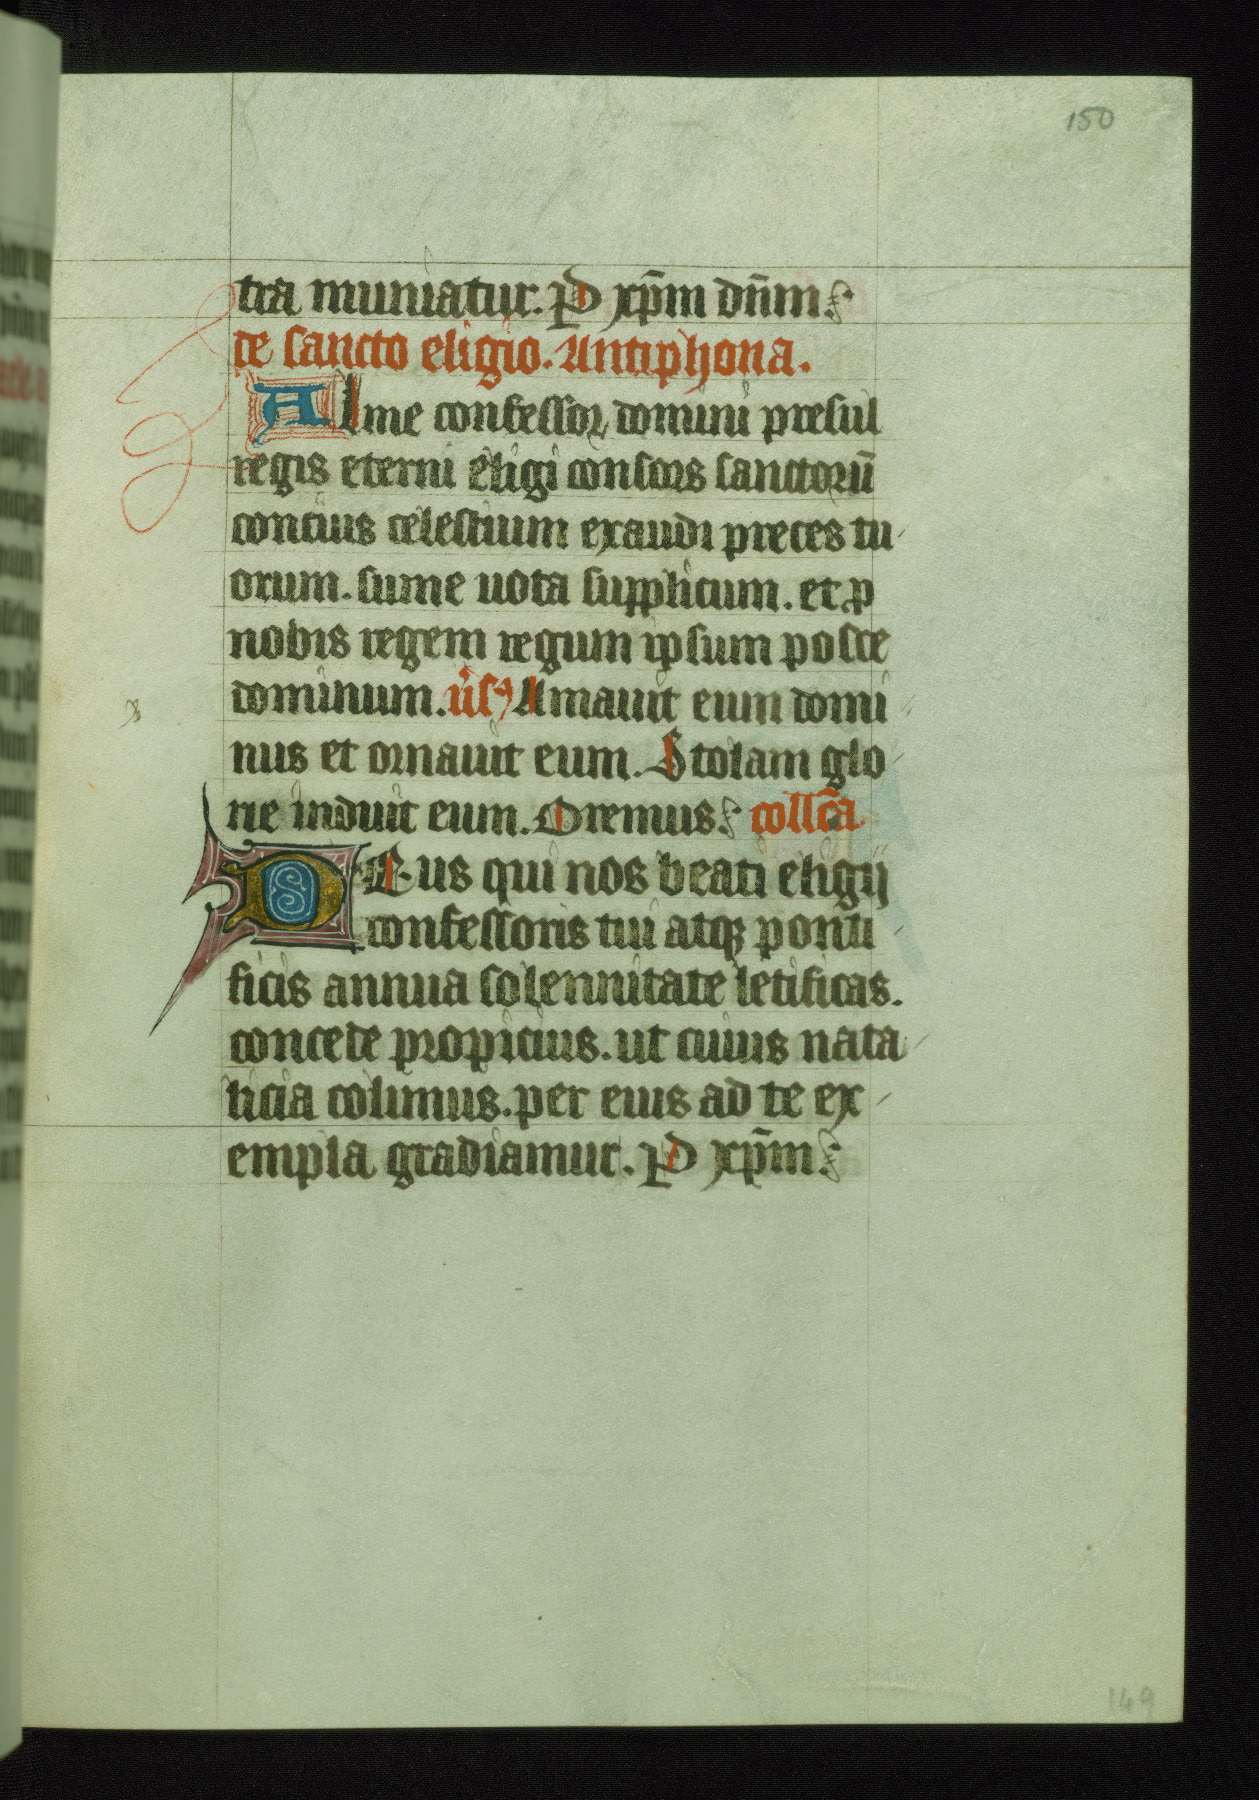 150
tra muniatur. P xp̄m dn̄m:
de sancto eligio. Antiphona.
Alme confessor domini presul
regis eterni eligi consors sanctorū
conciuis celestium exaudi preces tu
orum. sume uota supplicum. et ꝓ
nobis regem regum ipsum posce
dominum. v̄s Amauit eum domi
nus et ornauit eum. Stolam glo
rie induit eum. Oremus: coll̄ca
DEus qui nos beati eligij
confessoris tui atqꝫ ponti
ficis annua solennitate letificas.
concede propicius. ut cuius nata
licia colimus. per eius ad te ex
empla gradiamur. P xp̄m:
149